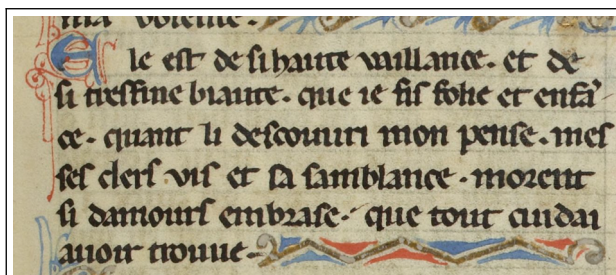 ma voient
Ele est de si haute vaillance. et de
si tresfine biaute. que ie fis folie et enfã
ce. quant li descouuri mon pense. mes
ses clers vis et sa samblance. morent
si damours embrase. que tout cuidai
auoir trouue.